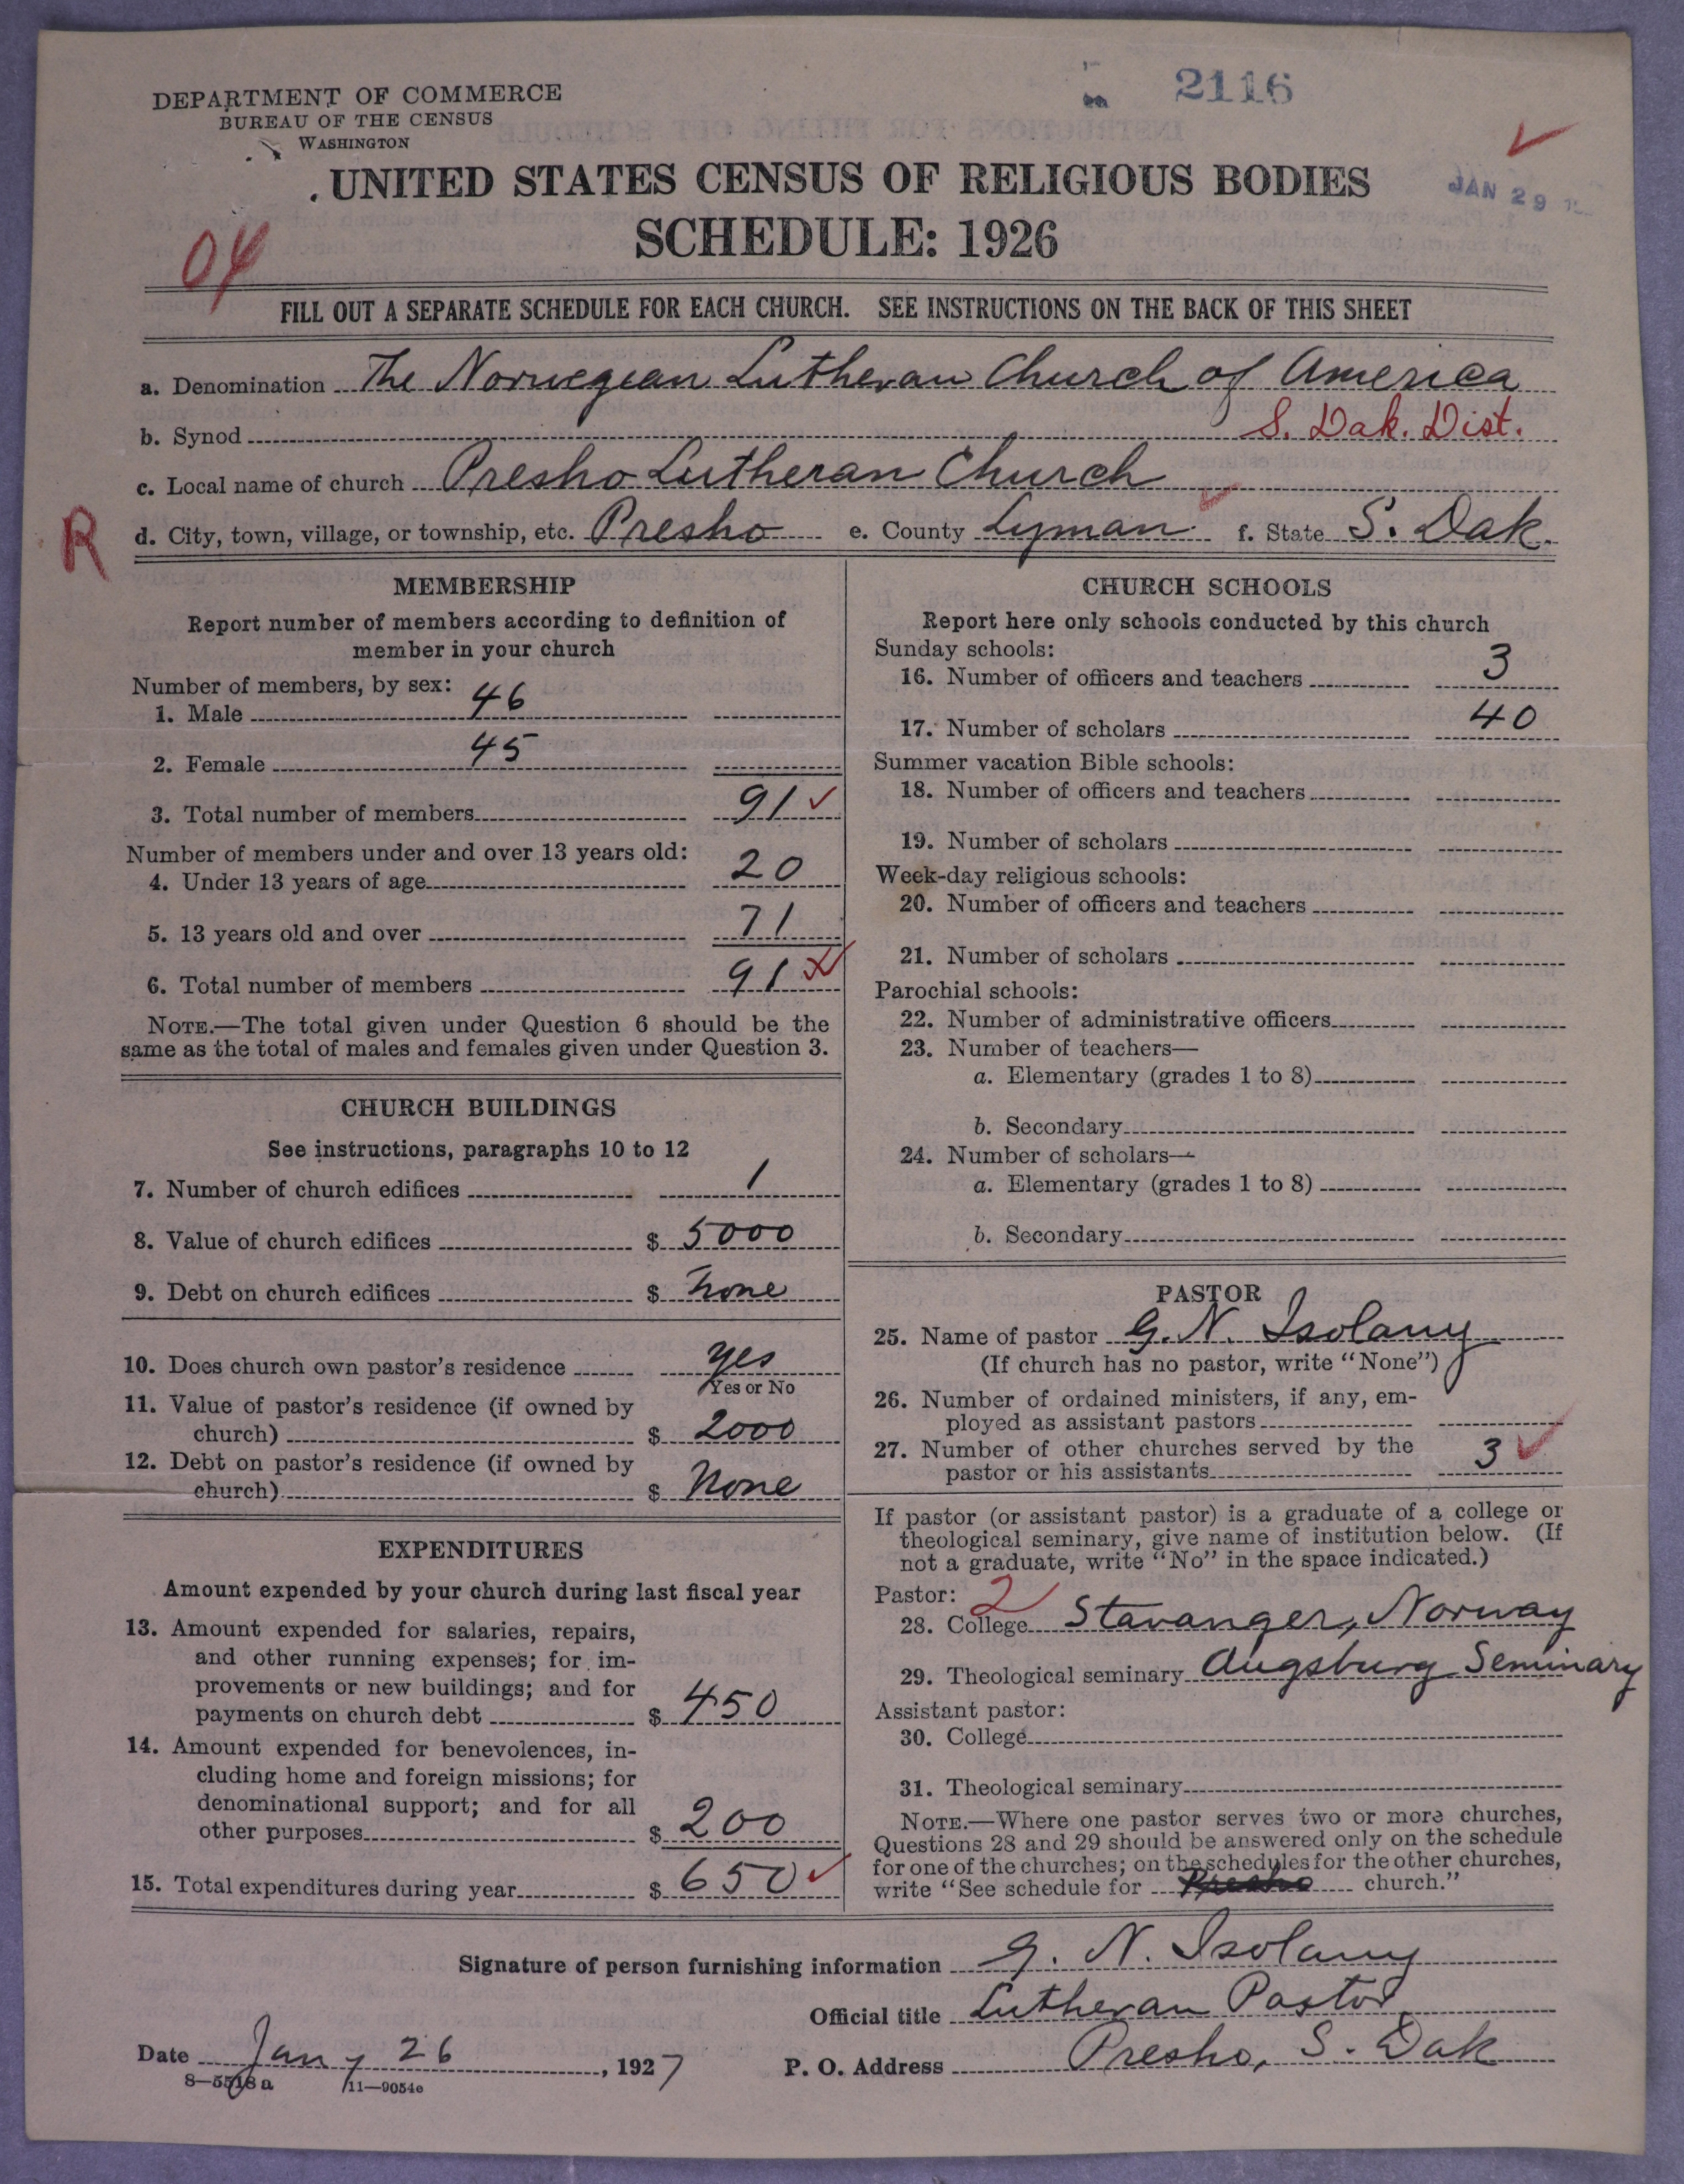 2116
DEPARTMENT OF COMMERCE
BUREAU OF THE CENSUS
WASHINGTON
UNITED STATES CENSUS OF RELIGIOUS BODIES
JAN 29
SCHEDULE: 1926
04
FILL OUT A SEPARATE SCHEDULE FOR EACH CHURCH. SEE INSTRUCTIONS ON THE BACK OF THIS SHEET
a. Denomination The Norwegian Lutheran Church of America
b. Synod S. Dak. Dist.
c. Local name of church Presho Lutheran Church
R
d. City, town, village, or township, etc. Presho e. County Lyman f. State S. Dak.
MEMBERSHIP
Report number of members according to definition of
member in your church
Number of members, by sex:
1. Male 46
2. Female 45
3. Total number of members 91
Number of members under and over 13 years old:
4. Under 13 years of age 20
5. 13 years old and over 71
6. Total number of members 91
NOTE.—The total given under Question 6 should be the
same as the total of males and females given under Question 3.
CHURCH BUILDINGS
See instructions, paragraphs 10 to 12
7. Number of church edifices 1
8. Value of church edifices $ 5000
9. Debt on church edifices $ None
10. Does church own pastor's residence Yes
Yes or No
11. Value of pastor's residence (if owned by
church) $ 2000
12. Debt on pastor's residence (if owned by
church) $ None
EXPENDITURES
Amount expended by your church during last fiscal year
13. Amount expended for salaries, repairs,
and other running expenses; for im-
provements or new buildings; and for
payments on church debt $ 450
14. Amount expended for benevolences, in-
cluding home and foreign missions; for
denominational support; and for all
other purposes $ 200
15. Total expenditures during year $ 650
CHURCH SCHOOLS
Report here only schools conducted by this church
Sunday schools:
16. Number of officers and teachers 3
17. Number of scholars 40
Summer vacation Bible schools:
18. Number of officers and teachers
19. Number of scholars
Week-day religious schools:
20. Number of officers and teachers
21. Number of scholars
Parochial schools:
22. Number of administrative officers
23. Number of teachers—
a. Elementary (grades 1 to 8)
b. Secondary
24. Number of scholars—
a. Elementary (grades 1 to 8)
b. Secondary
PASTOR
25. Name of pastor G. N. Isolany
(If church has no pastor, write "None")
26. Number of ordained ministers, if any, em-
ployed as assistant pastors
27. Number of other churches served by the
pastor or his assistants 3
If pastor (or assistant pastor) is a graduate of a college or
theological seminary, give name of institution below. (If
not a graduate, write "No" in the space indicated.)
Pastor: 2
28. College Stavanger, Norway
29. Theological seminary Augsburg Seminary
Assistant pastor:
30. College
31. Theological seminary
NOTE.—Where one pastor serves two or more churches,
Questions 28 and 29 should be answered only on the schedule
for one of the churches; on the schedules for the other churches,
write "See schedule for Presho church."
Signature of person furnishing information G. N. Isolany
Official title Lutheran Pastor
Date Jany 26, 1927 P. O. Address Presho, S. Dak
8—5518 a 11—9054e